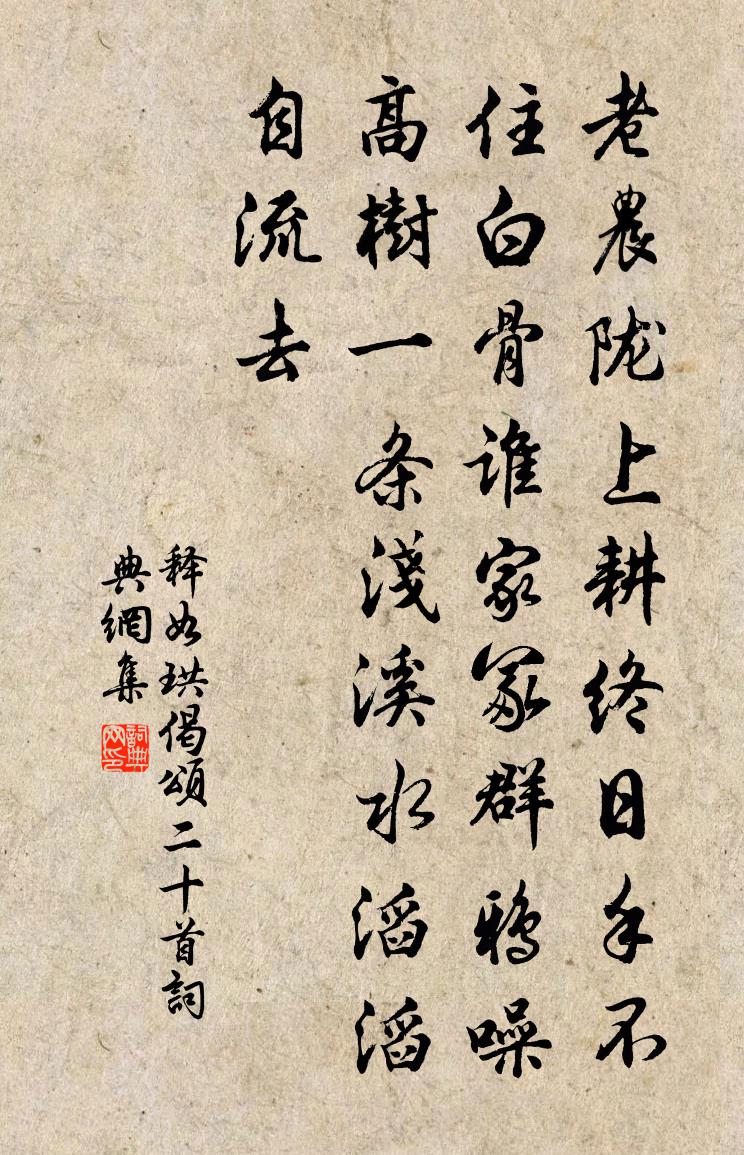 老農陇上耕終日手不
住白骨谁家冢群鸦噪
高樹一条淺溪水滔滔
自流去
释如珙偈頌二十首詞
典網集
詞典网印